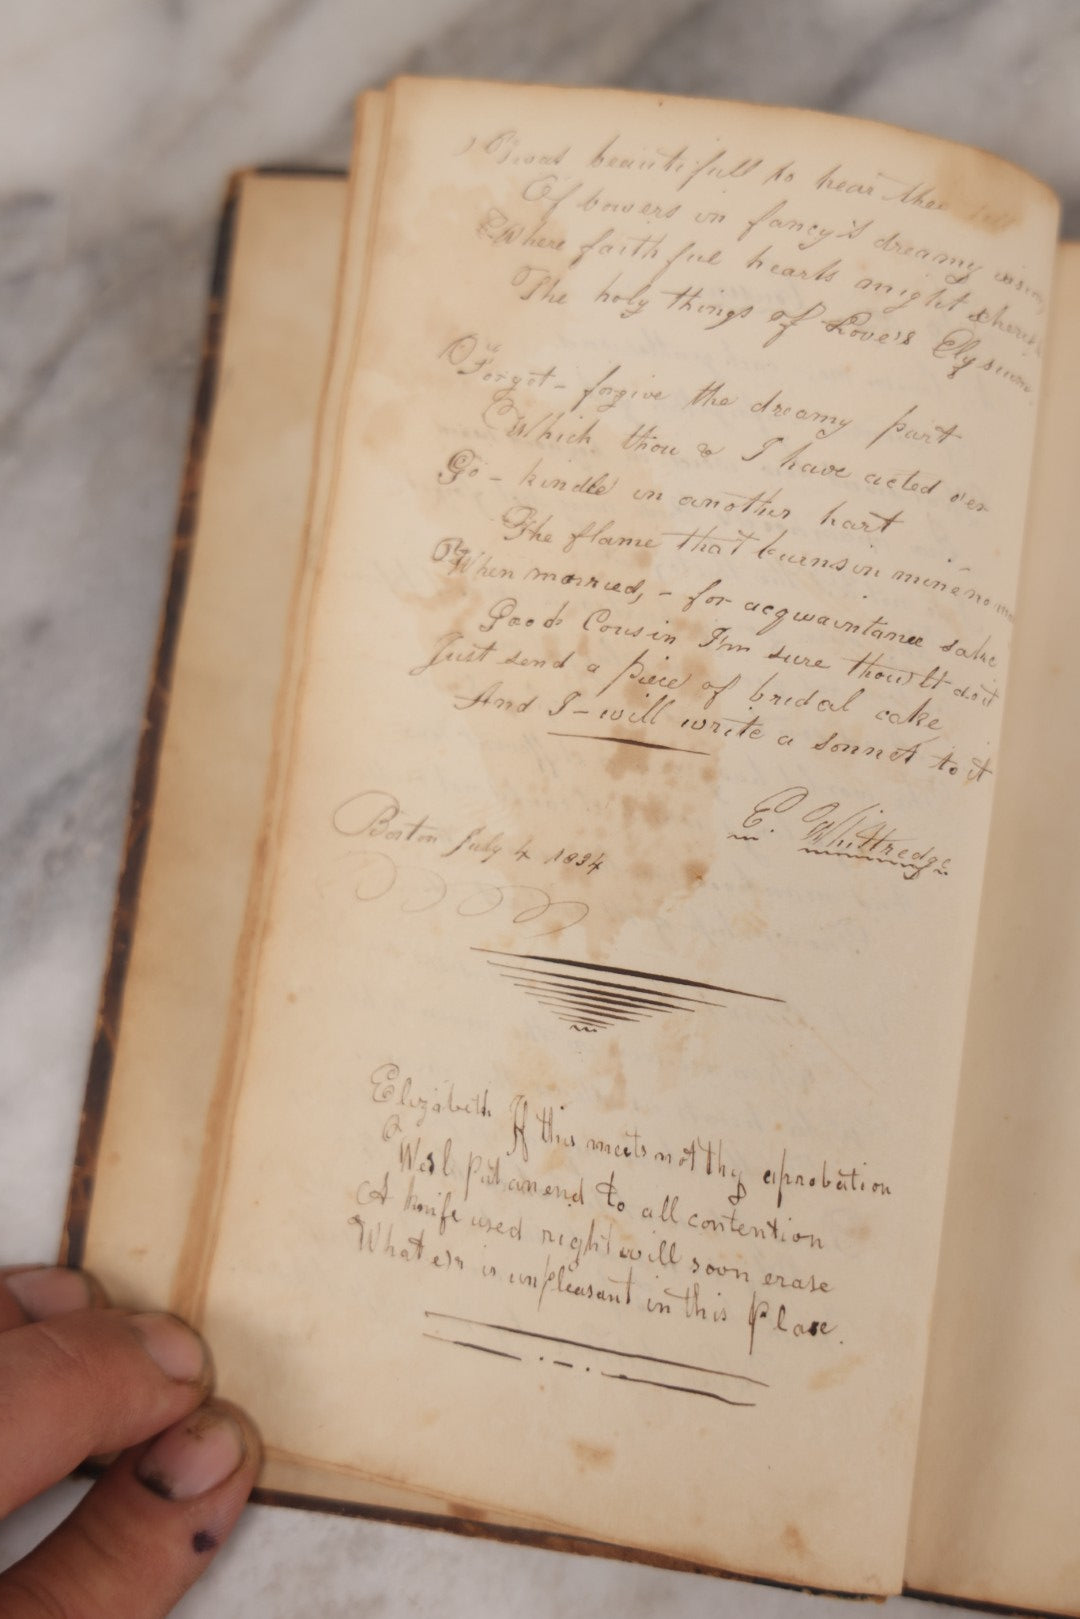 'Twas beautifull to hear thee tell
Of bowers in fancy's dreamy
Where faithful hearts might cherish
The holy things of Love's Elysium.
Forgot - forgive the dreamy part
Which thou & I have acted o'er
Go - kindle in another hart
The flame that burns in mine no
When married, - for acquaintance sake
Good Cousin I'm sure thou'lt do it
Just send a piece of bridal cake
And I - will write a sonnet to it
E. Whittredge
Boston July 4 1834
Elizabeth If this meets not thy aprobation
We'l put an end to all contention
A knife used right will soon erase
What e'er is unpleasant in this Place.